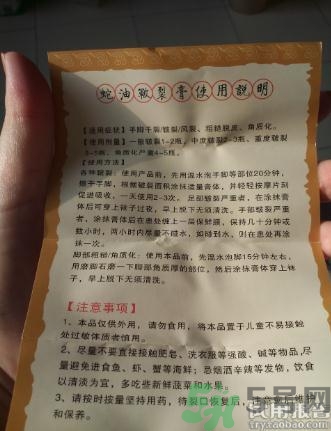 蛇油皲裂膏使用説明
【适用症状】手脚干裂/皲裂/风裂、粗糙脱皮、角质化。
【使用剂量】一般皲裂1-2瓶，中度皲裂2-3瓶，重度皲裂
3-5瓶，角质化严重4-5瓶。
【使用方法】
各种皲裂：使用产品前，先用温水泡手脚等部位20分钟，
擦干手脚，根据皲裂面积涂抹适量膏体，并轻轻按摩片刻
促进吸收，一天使用2-3次。足部皲裂严重者，在涂抹膏
体后可穿上袜子过夜，早上脱下无须清洗。手部皲裂严重
者，涂抹膏体后在患处缠上一层保鲜膜，保持几十分钟或
数小时，两小时内尽量不碰水，如碰到水，则在患处再涂
抹一次。
脚部粗糙/角质化：使用本品前，先温水泡脚15分钟左右，
用磨脚石磨一下脚部角质厚的部位，然后涂抹膏体穿上袜
子，早上脱下无须清洗。
【注意事项】
1、本品仅供外用，请勿食用，将本品置于儿童不易接触
处过敏体质者慎用。
2、尽量不要直接接触肥皂、洗衣服等强酸、碱等物品，尽
量避免进食鱼、虾、蟹等海鲜；忌烟酒辛辣等发物，饮食
以清淡为宜，多吃些新鲜蔬菜和水果。
3、请按时按量坚持用药，待裂口恢复后，注意愈后维护
和保养。
5号网
试用报告
try.taobao.com